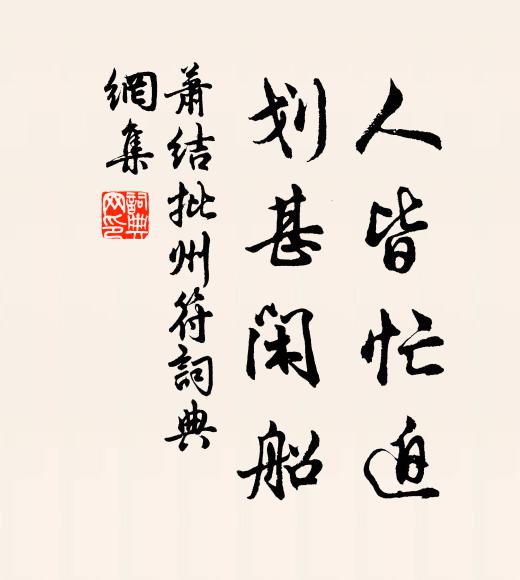 人皆忙迫
划甚闲船
萧结批州符詞典
網集
詞典
网印